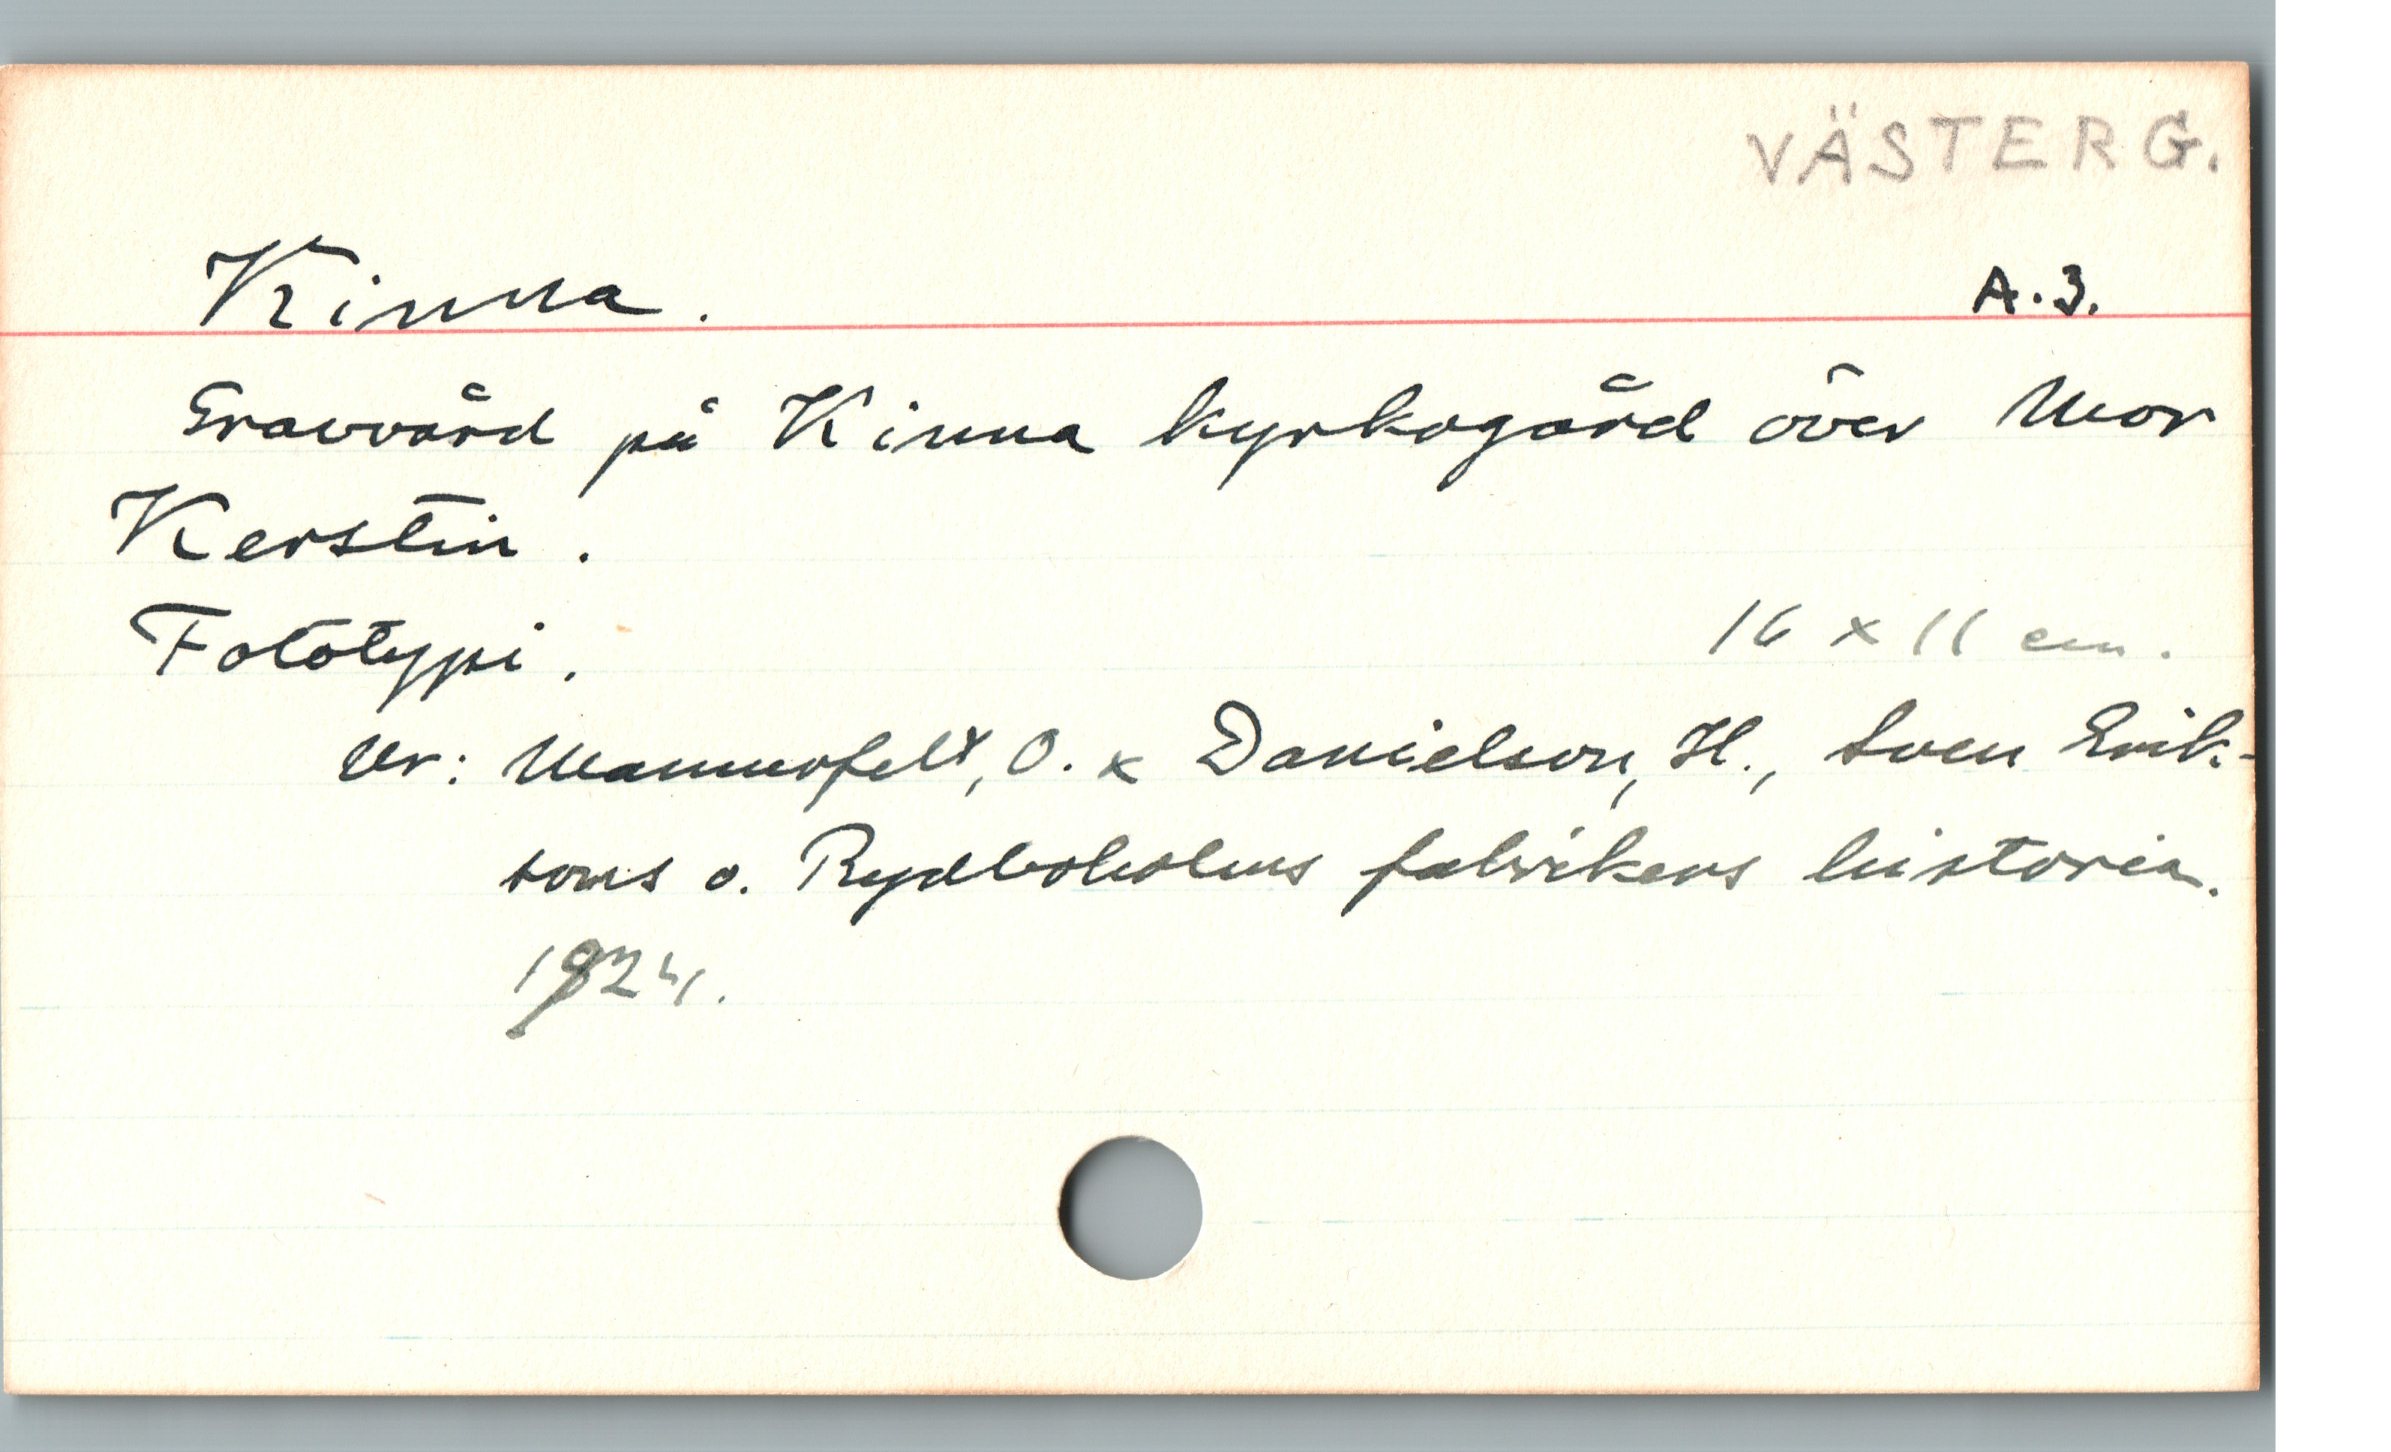 VÄSTERG.
Kinna. A.3.
Gravvård på Kinna kyrkogård över Mor
Kerstin.
Fototypi. 16 x 11 cm.
Ur: Mannerfelt, O. x Danielson, H., Sven Erik-
sons o. Rydboholms fabrikers historia.
1924.